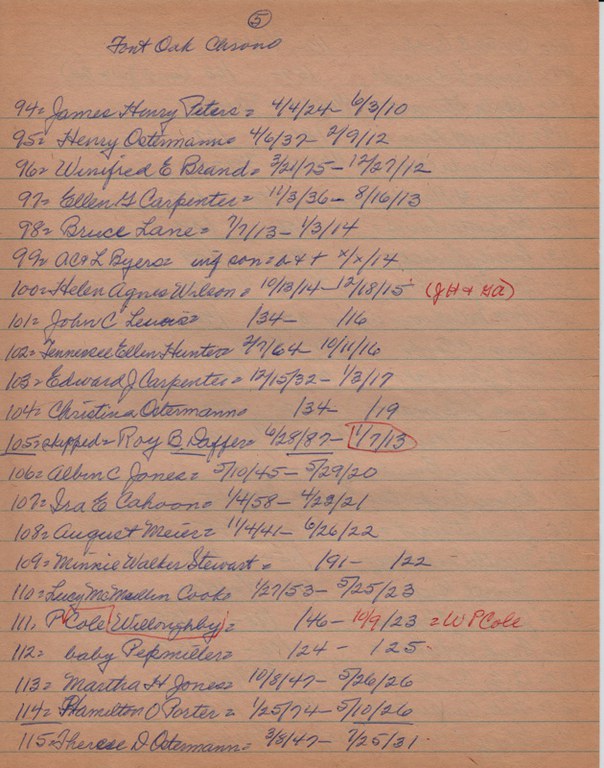 5
Font Oak Chrono
94= James Henry Peters = 4/4/24 - 6/3/10
95= Henry Ostermann = 4/6/37 - 2/9/12
96= Winifred E Brand = 3/21/75 - 12/27/12
97= Ellen G Carpenter = 11/3/36 - 8/16/13
98= Bruce Lane = 7/7/13 - 1/3/14
99= AC + L Byers = inf son = b + + x/x/14
100= Helen Agnes Wilson = 10/13/14 - 12/18/15 (JH + Ga)
101= John C Lewis = /34 - /16
102= Tennessee Ellen Hunter = 2/7/64 - 10/11/16
103= Edward J Carpenter = 12/15/32 - 1/3/17
104= Christina Ostermann = /34 - /19
105= skipped = Roy B Daffer = 6/28/87 - 1/7/13
106= Albin C Jones = 5/10/45 - 5/29/20
107= Ira E Cahoon = 1/4/58 - 4/23/21
108= August Meier = 11/4/41 - 6/26/22
109= Minnie Walker Stewart = /91 - /22
110= Lucy McMullin Cook = 1/27/53 - 5/25/23
111. P Cole (Willoughby) = /46 - 10/9/23 = W P Cole
112= baby Pepmiller = /24 - /25
113= Martha H Jones = 10/8/47 - 5/26/26
114= Hamilton O Porter = 1/25/74 - 5/10/26
115= Therese D Ostermann = 3/8/47 - 7/25/31